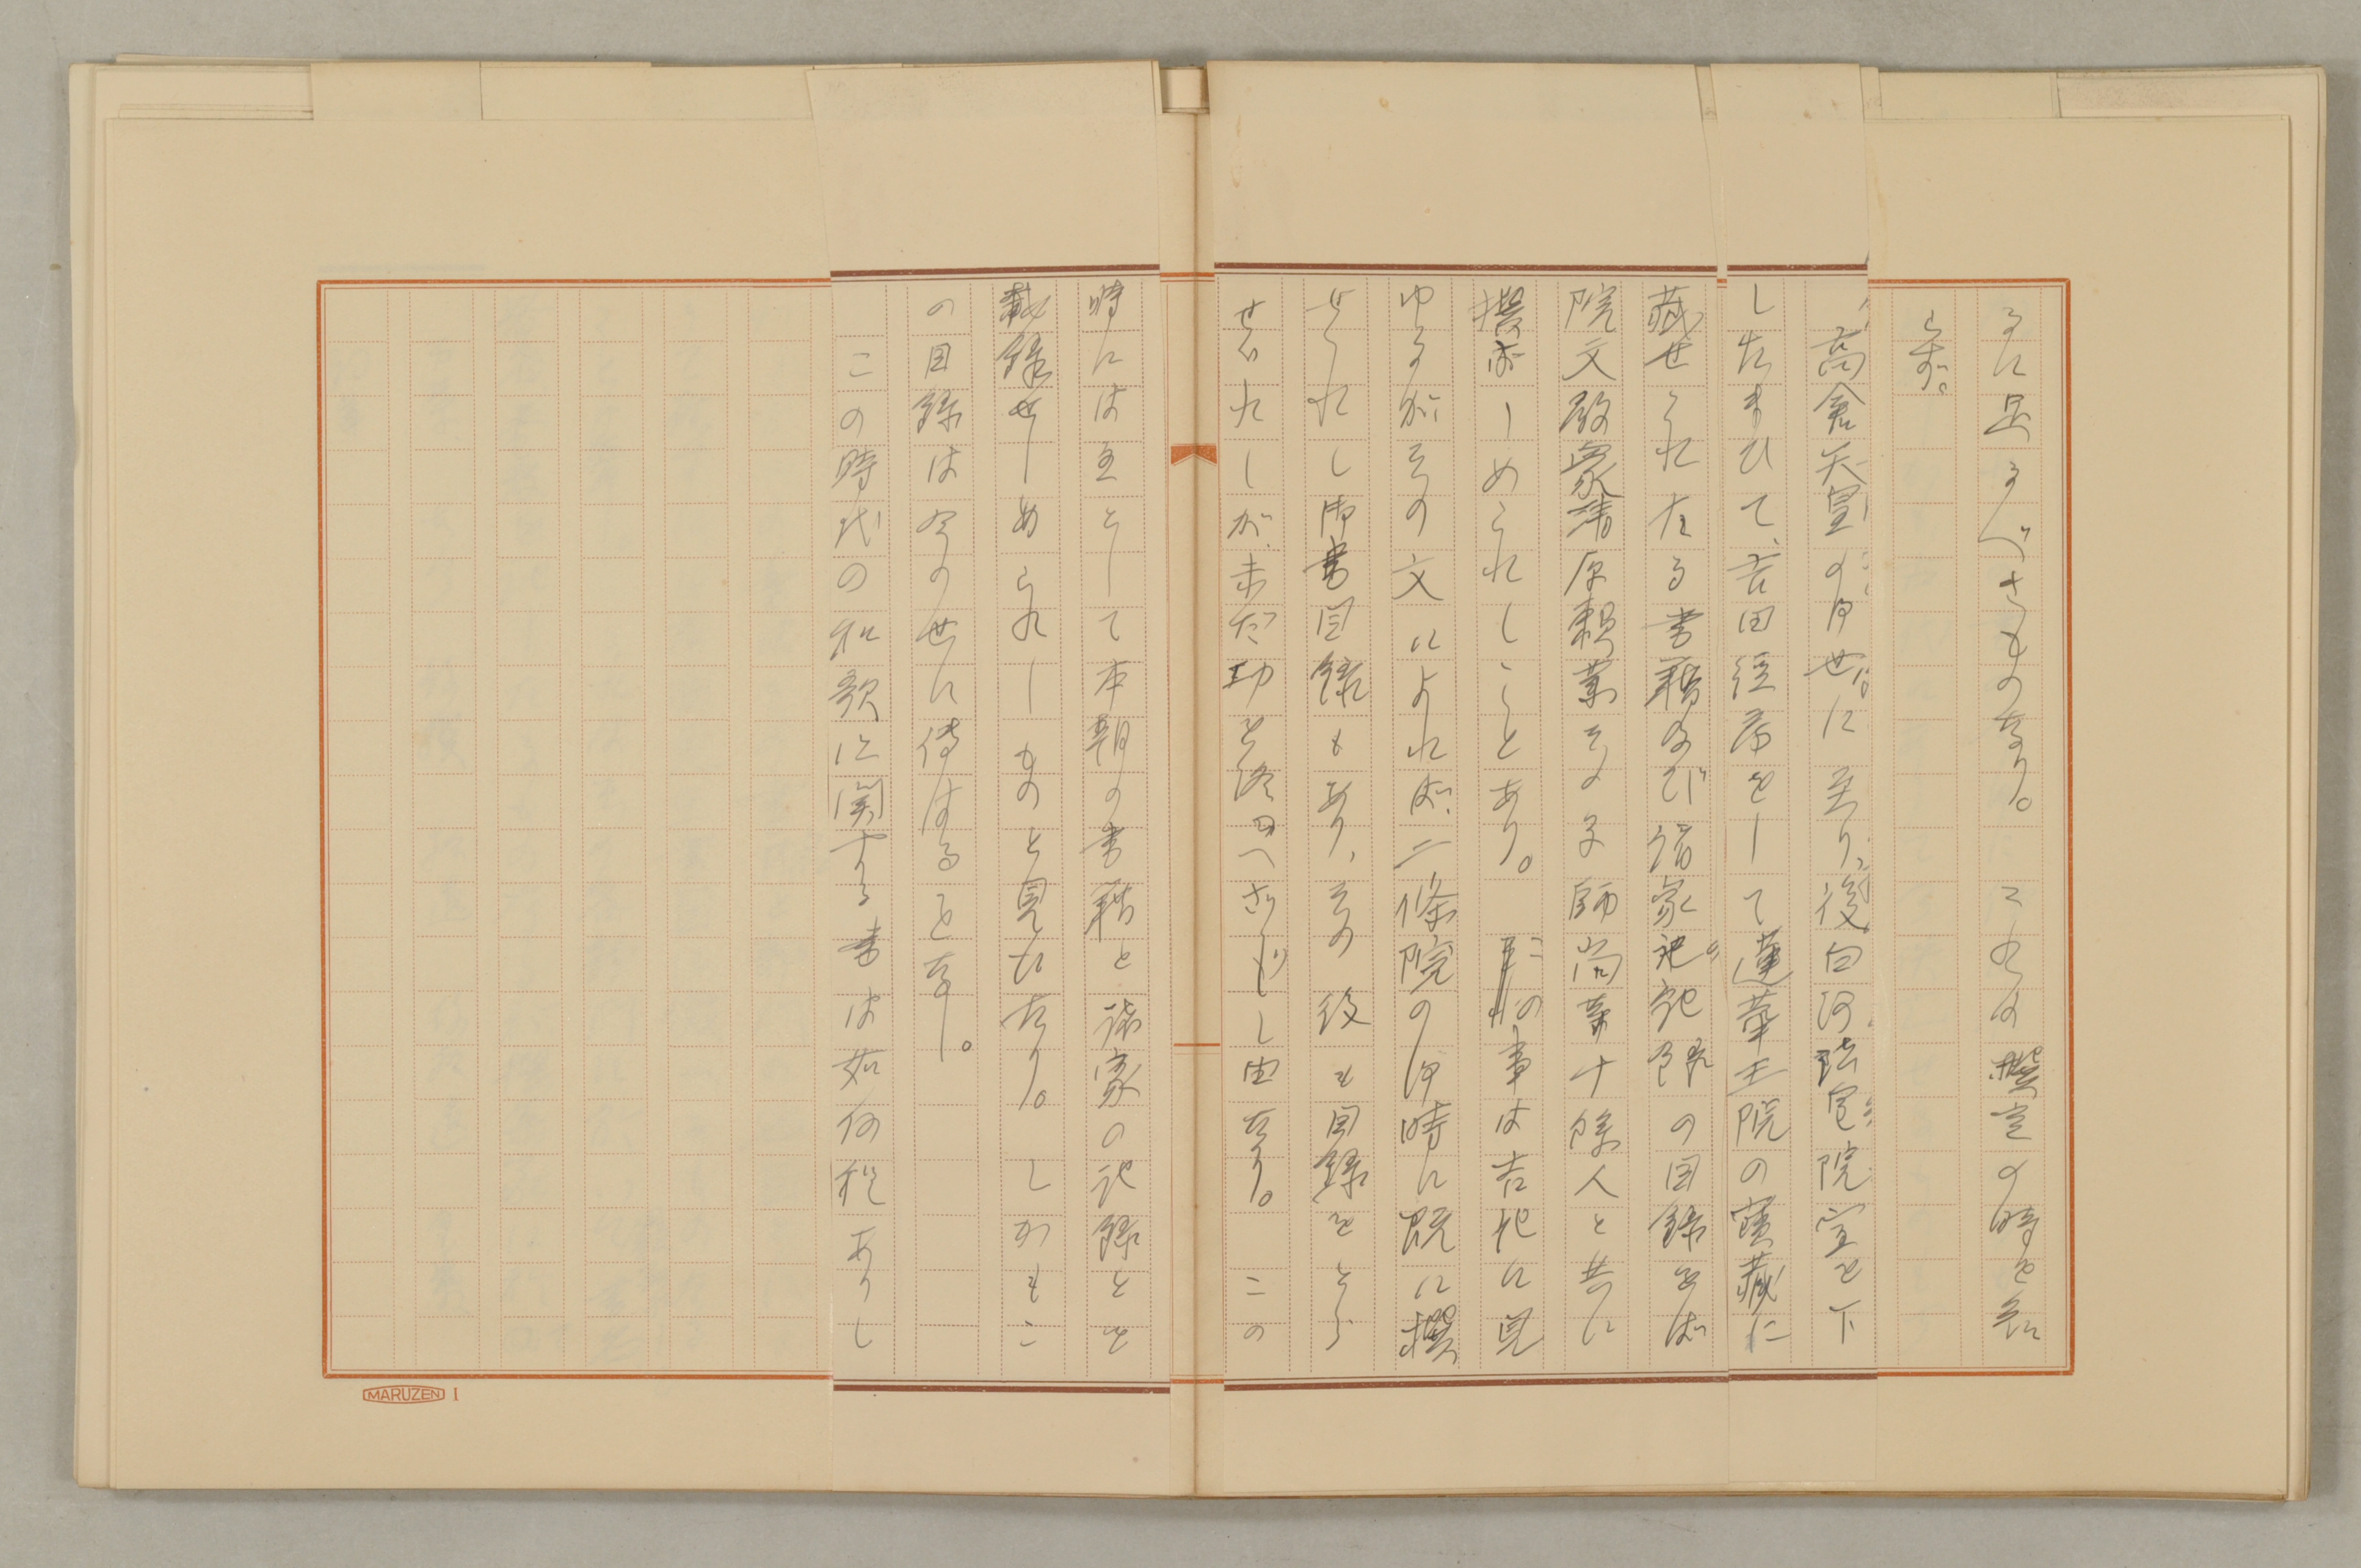 るに足るべきものなり。これは撰定の時を知
らず。
高倉天皇の御世に至り、後白河法皇院宣を下
したまひて、吉田経房をして蓮華王院の寶蔵に
蔵せられたる書籍及び諸家の記録の目録をば
院文殿衆清原頼業その子師尚等十餘人と共に
撰ばしめられしことあり。この事は吉記に見
ゆるがその文によれば、二條院の御時に既に撰
せられし御書目録もあり、その後も目録をとら
せられしが、未だ功を終へざりし由なり。この
時には主として本朝の書籍と諸家の記録とを
載録せしめられしものと見えたり。しかもこ
の目録は今の世に傳はるを見ず。
この時代の和歌に関する書は如何程ありし
MARUZEN I